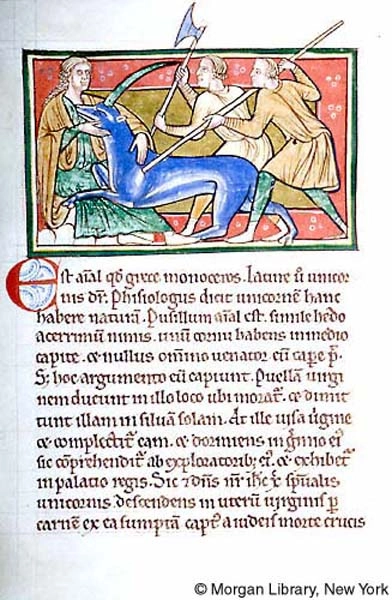 Est aīal qđ grece monoceros. latine ū unicor
nis dr̄. Phisiologus dicit unicornē hanc
habere naturā. Pusillum aīal est. simile hedo
acerrimū nimis. unū cornu habens inmedio
capite. et nullus omīno venator eū capere p̄.
S; hoc argumento eū capiunt. Puellā uirgi
nem ducunt in illo loco ubi morat̄. et dimit
tunt illam in siluā solam. At ille uisa uirgine
et complectit̄ eam. et dormiens in gremio ei'
sic cōprehendit̄ ab exploratorib; ei'. et exhibet̄
in palatio regis. Sic et dn̄s nr̄ ih̄c xp̄c spiritalis
unicornis descendens in uterū uirginis p̄
carnem ex ea sumptam capt' a iudeis morte crucis
© Morgan Library, New York